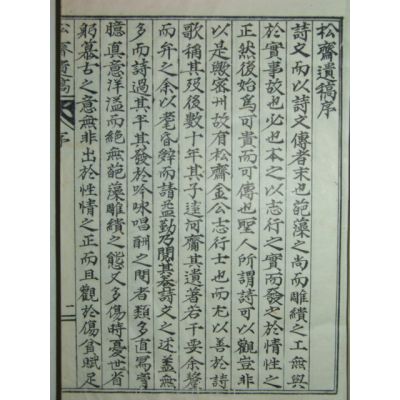 松齋遺稿序
詩文而以詩文傳者末也葩藻之尚而雕繢之工無與
於實事故也必也本之以志行之實而發之於情性之
正然後始爲可貴而可傳也聖人所謂詩可以觀豈非
以是歟密州故有松齋金公志行士也而尤以善於詩
歌稱其歿後數十年其子達河齋其遺著若干要余釐
而弁之余以耄昏辭而請益勤乃閱其詩文之述盖無
多而詩過其半其發於吟咏唱酬之間者類多直寫胷
臆眞意洋溢而絶無葩藻雕繢之態又多傷時憂世省
躬慕古之意無非出於性情之正而且觀於傷貧賦足
松齋遺稿 序 二